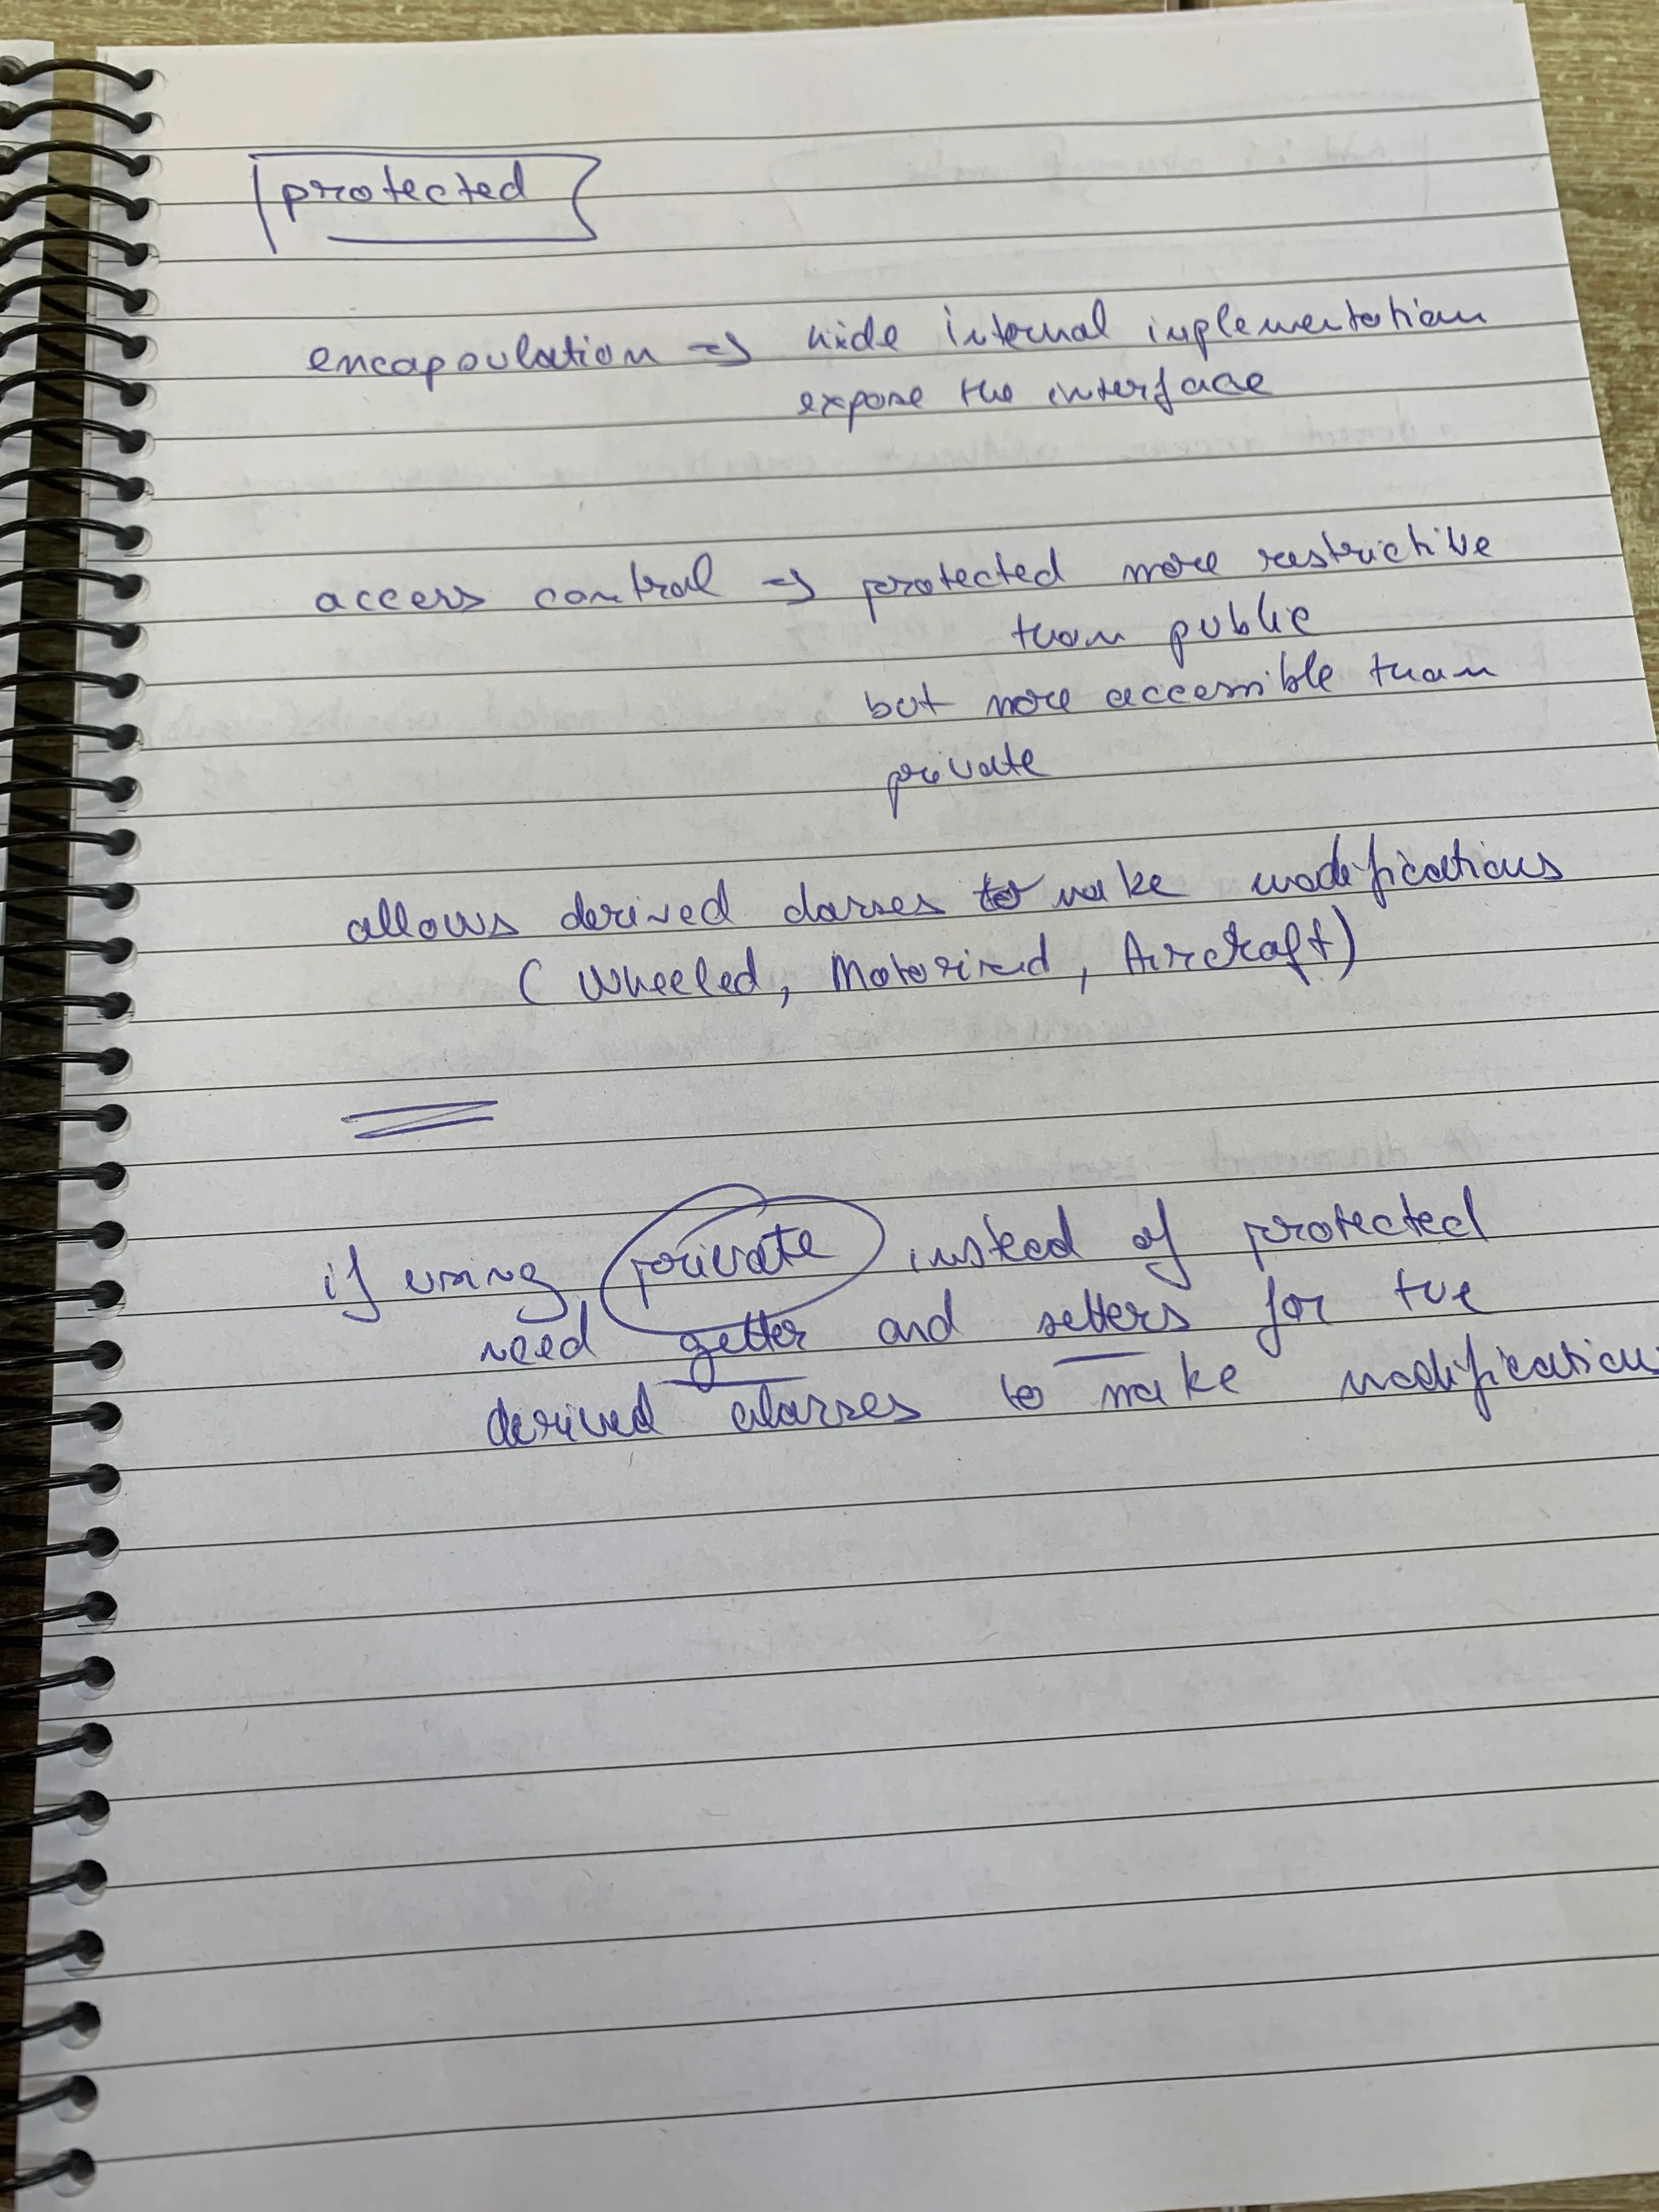 protected
encapsulation => hide internal implementation
expose the interface
access control => protected more restrictive
than public
but more accessible than
private
allows derived classes to make modifications
( Wheeled, Motorized, Aircraft)
if using private instead of protected
need getter and setters for the
derived classes to make modification